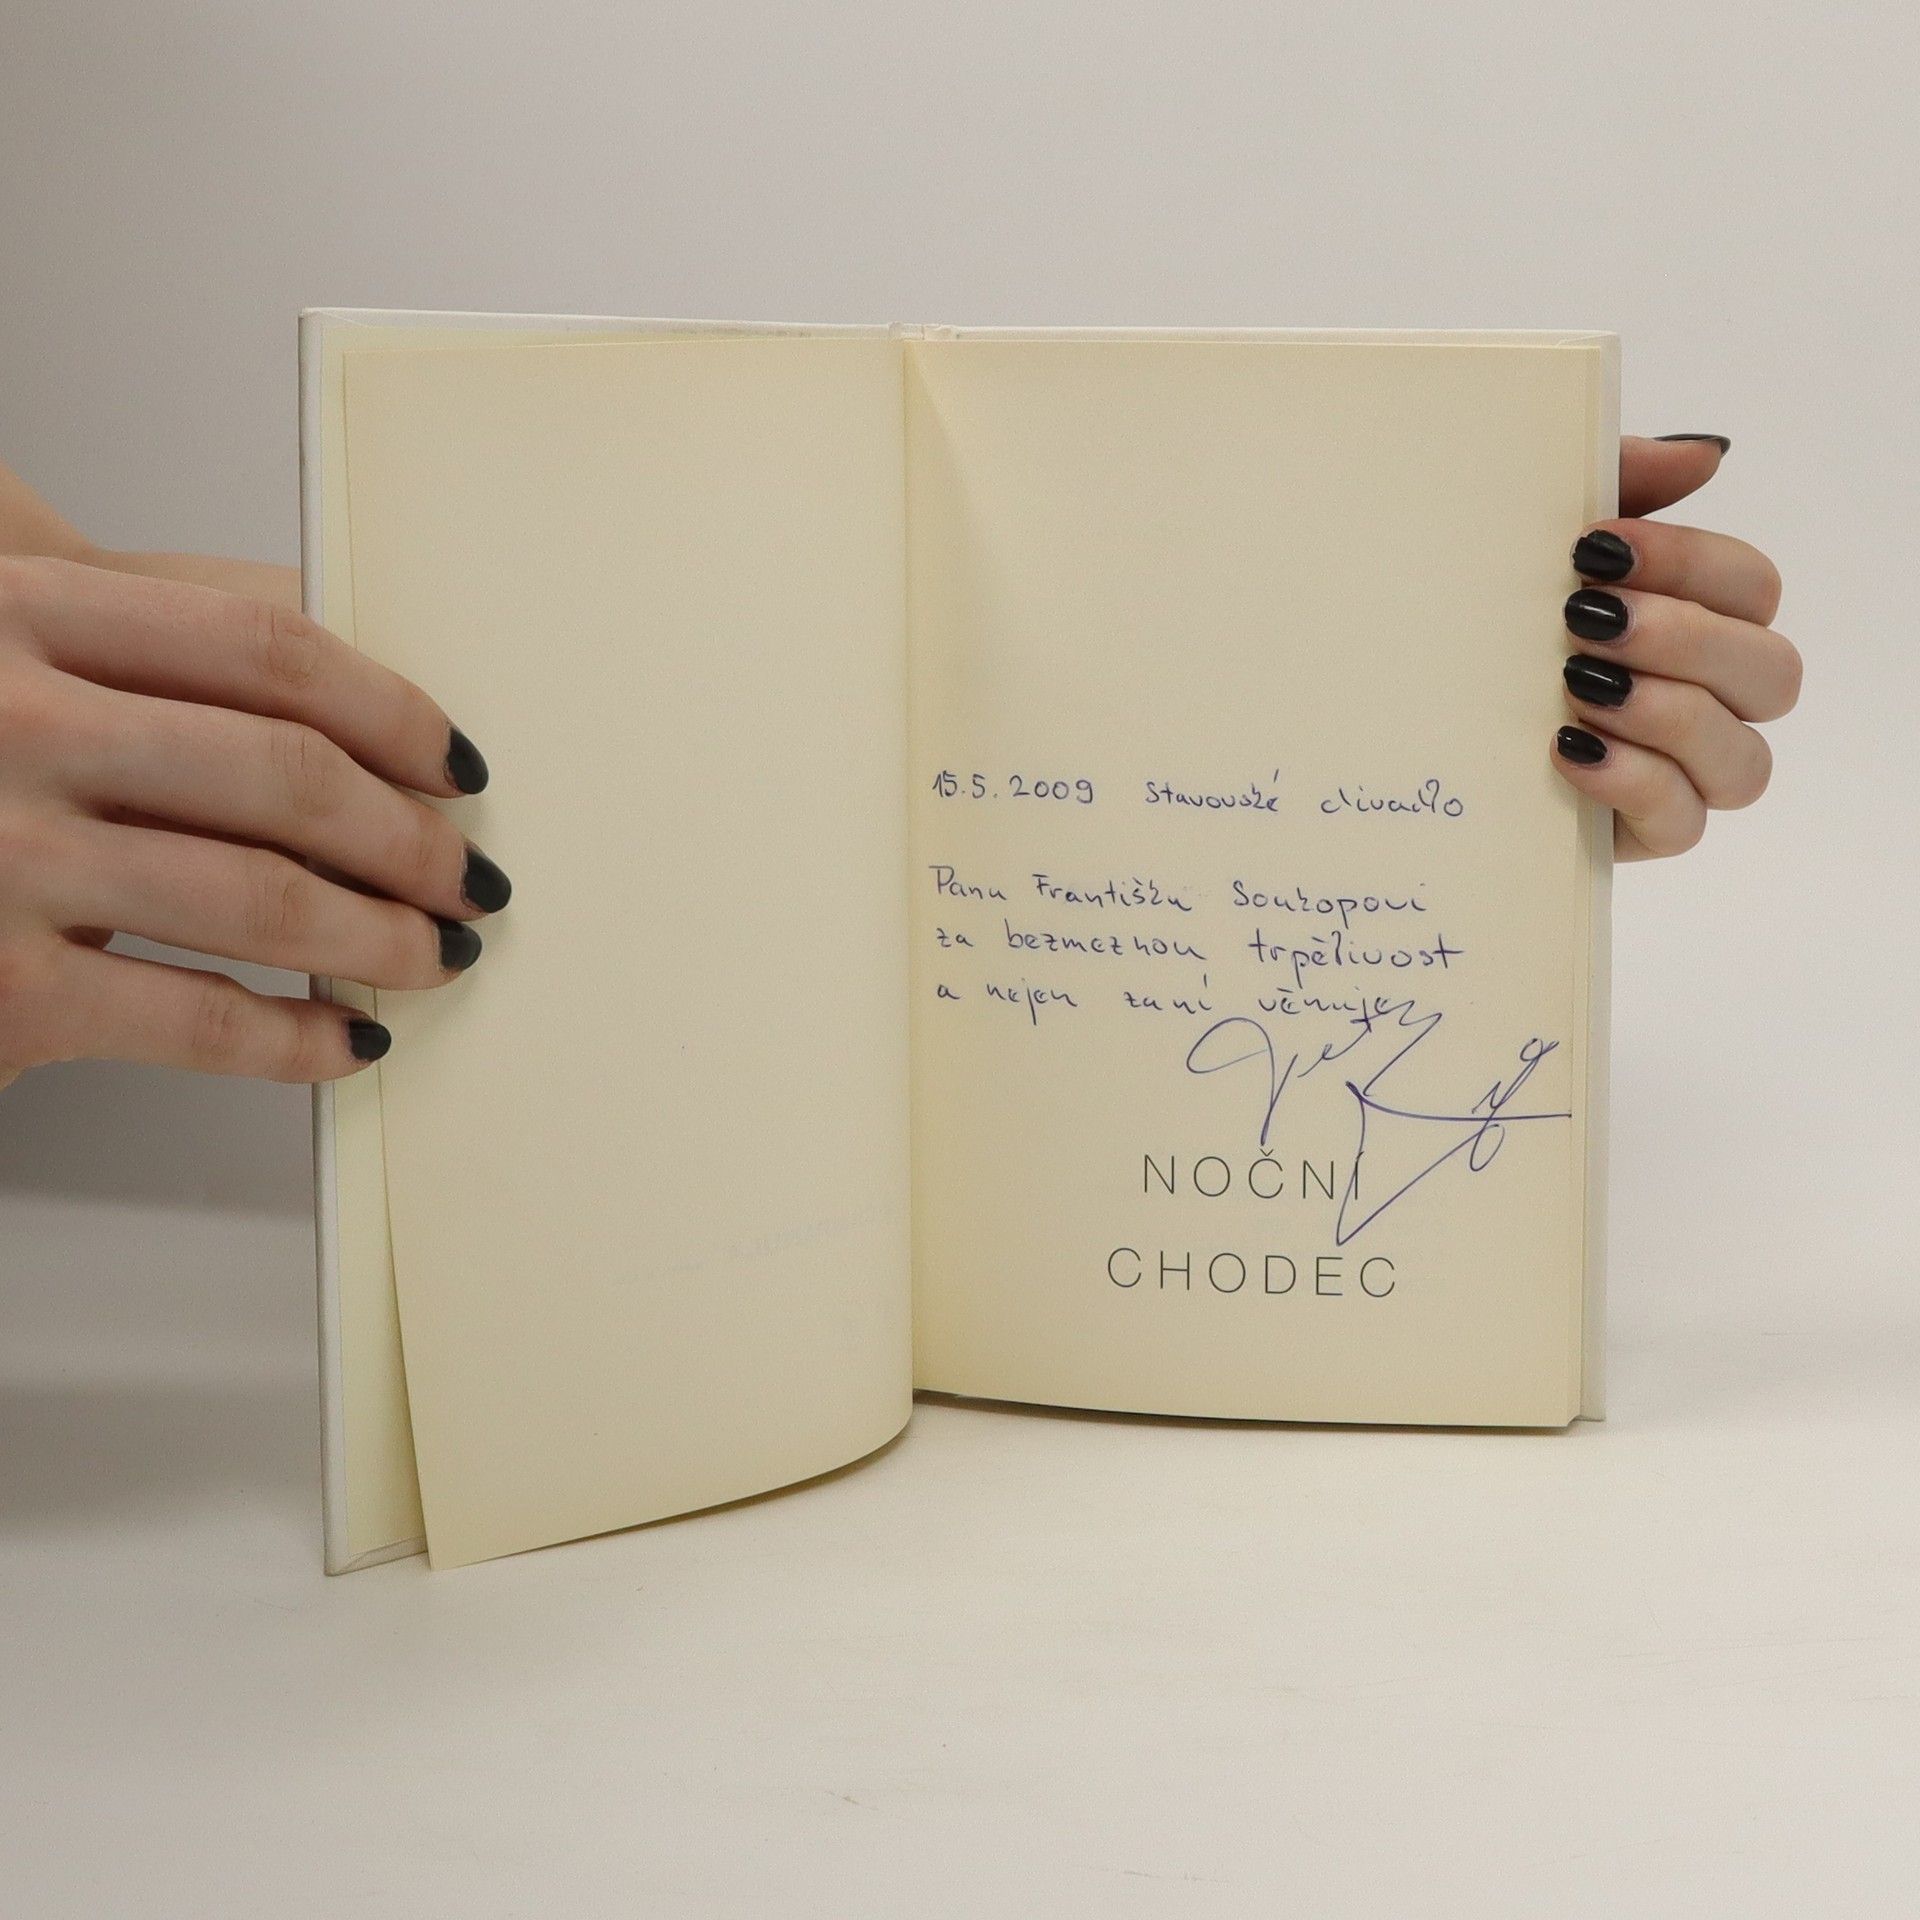 15.5.2009 Stavovské divadlo
Panu Františku Soukopovi
za bezmeznou trpělivost
a nejen za ní věnuje
NOČNÍ
CHODEC